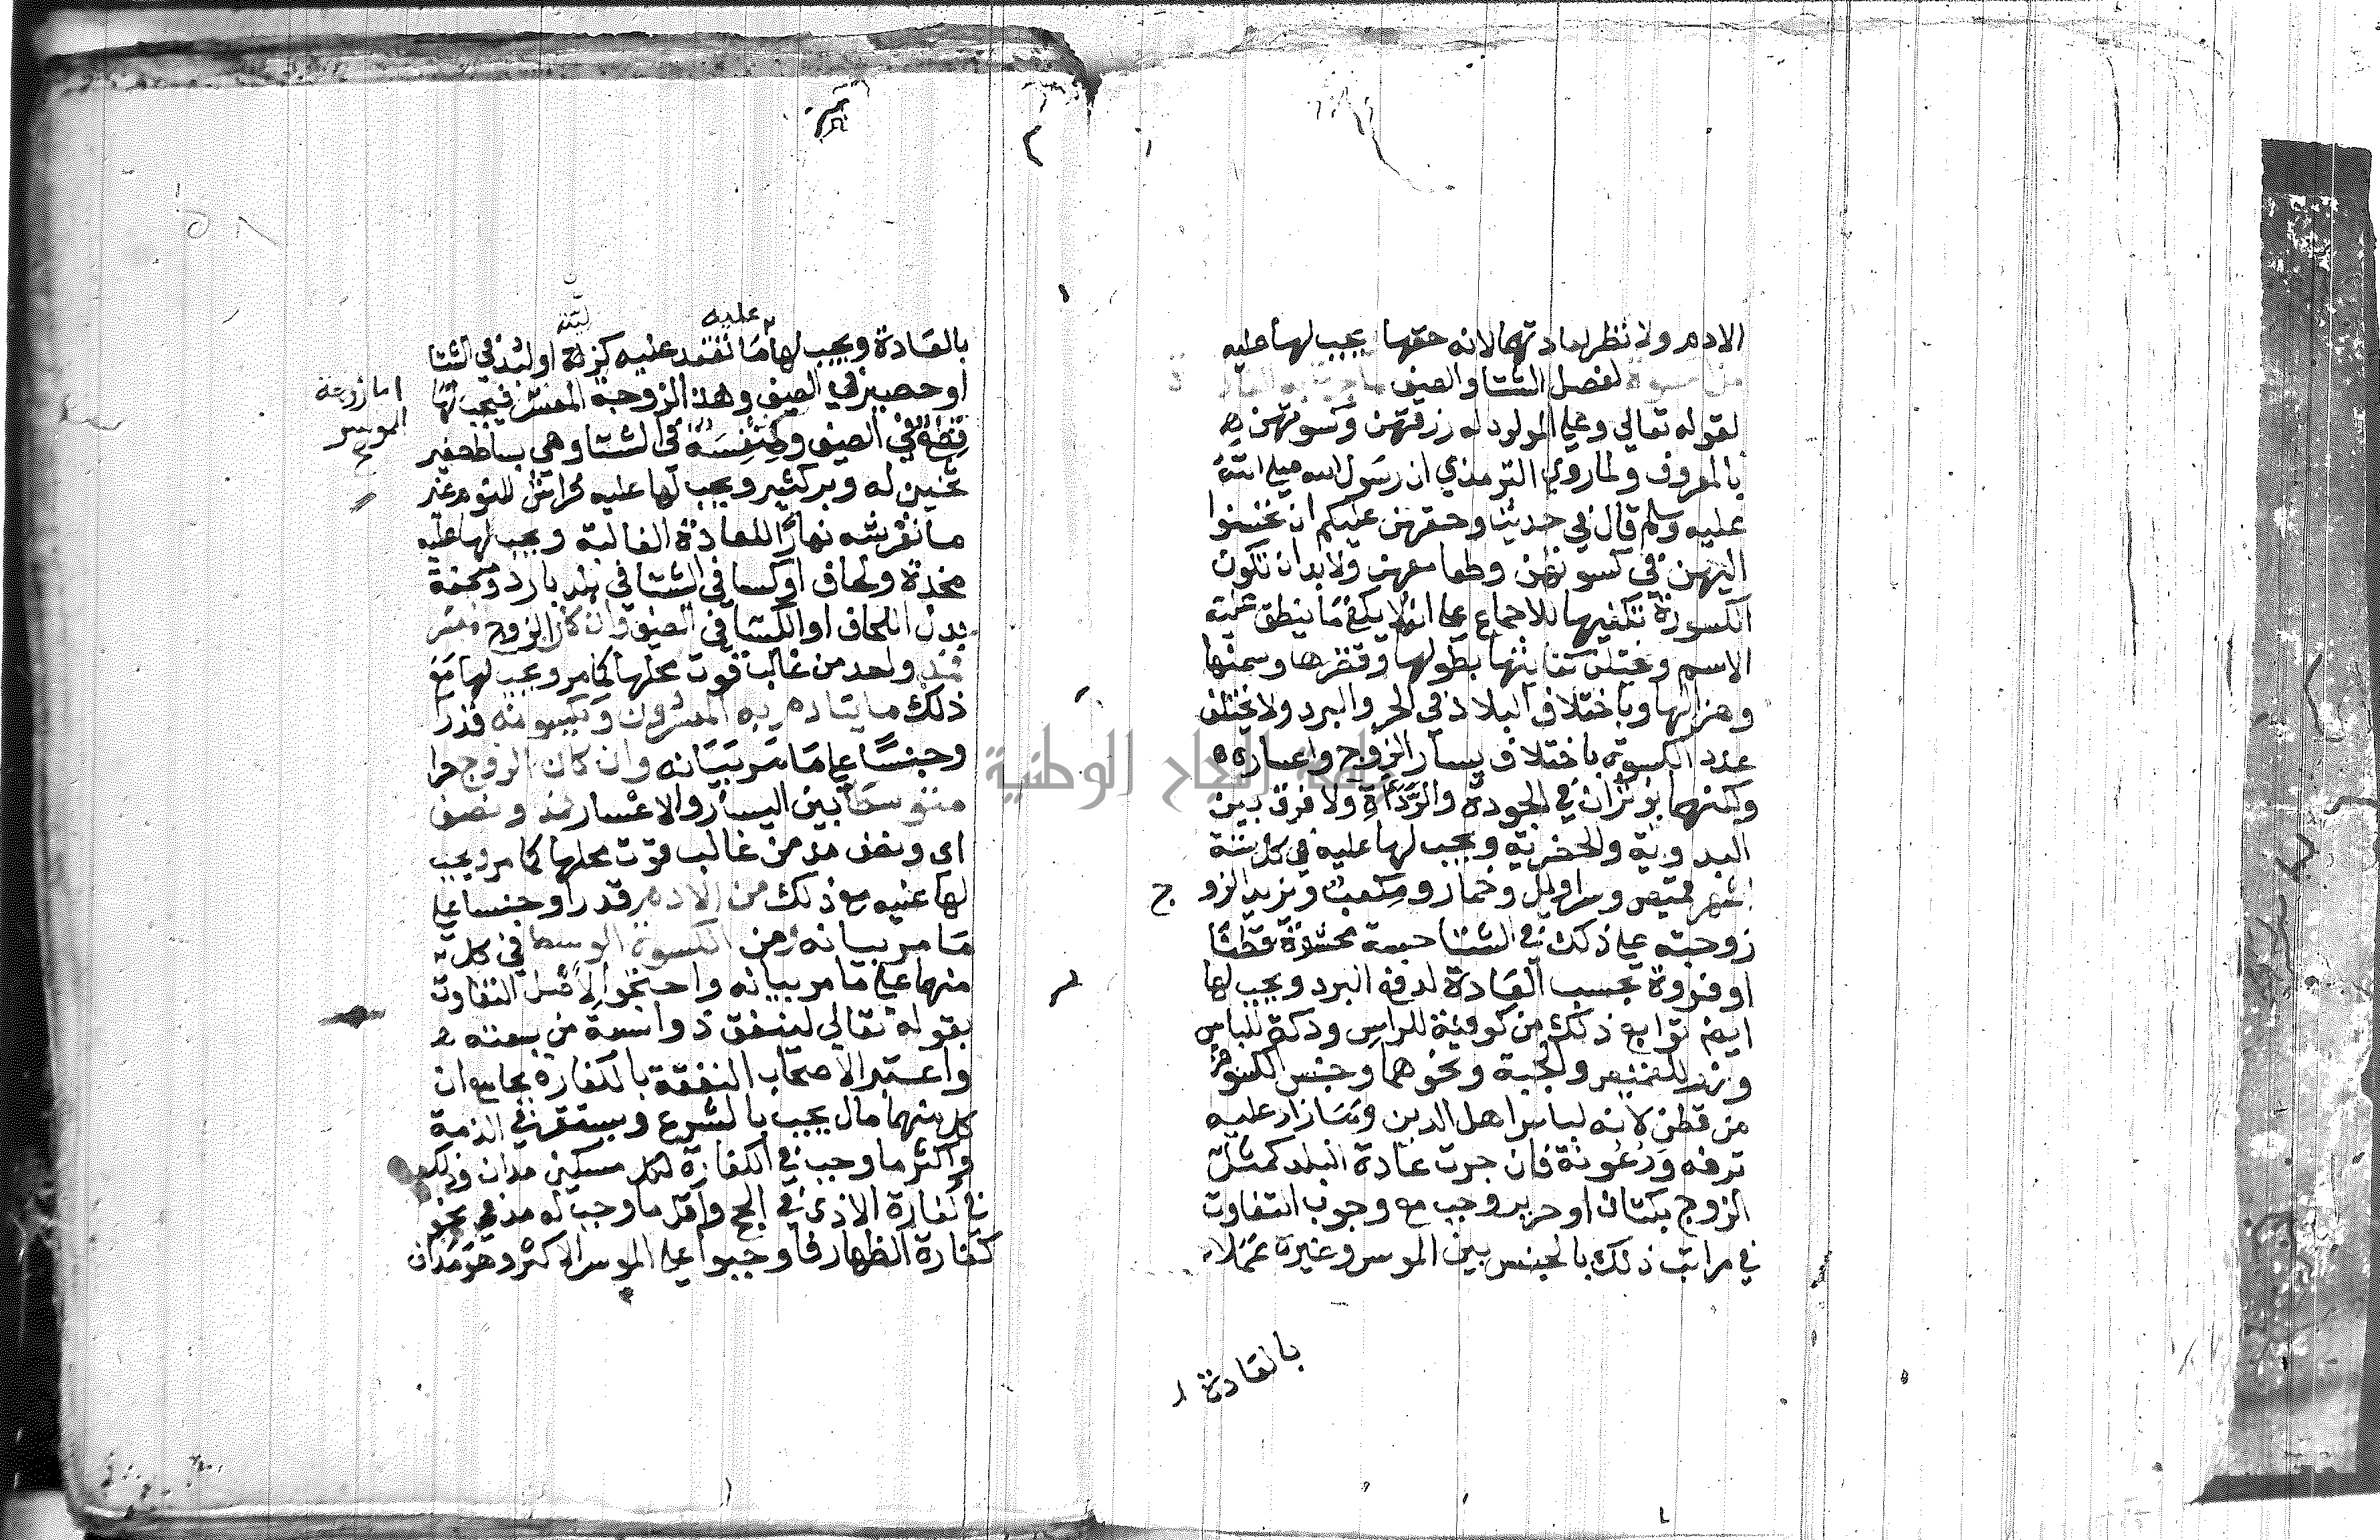 الادم ولا نظر لعادتها لانه حقها ويجب لها عليه
لفصل الشتا والصيف
لقوله تعالي وعلي المولود له رزقهن وكسوتهن
بالمعروف ولما روي الترمذي ان رسول الله صلي الله
عليه وسلم قال في حديث وحقهن عليكم ان تحسنوا
اليهن في كسوتهن وطعامهن ولا بد ان تكون
الكسوة تكفيها للاجماع علي انه لا يكفي ما ينطلق عليه
الاسم وتختلف كفايتها بطولها وقصرها وسمنها
وهزالها وباختلاف البلاد في الحر والبرد ولا يختلف
عدد الكسوة باختلاف يسار الزوج واعساره
ولكنهما يوثران في الجودة والرداة ولا فرق بين
البدوية والحضرية ويجب لها عليه في كل ستة
اشهر قميص وسراويل وخمار ومكعب ويزيد الزوج
زوجته علي ذلك في الشتا جبة محشوة قطنا
او فروة بحسب العادة لدفع البرد ويجب لها
ايضا توابع ذلك من كوفية للراس ودكة للباس
وزر للقميص والجبة ونحوهما وجنس الكسوة
من قطن لانه لباس اهل الدين وما زاد عليه
ترفه ورعونة فان جرت عادة البلد لمثل
الزوج بكتان او حرير وجب مع وجوب التفاوت
في مراتب ذلك بالجنس بين الموسر وغيره عملا
بالعادة
بالعادة ويجب لها ما تقعد عليه كزلية او لبد في الشتا
عليه
او حصير في الصيف وهذا لزوجة المعسر فيجب لها
اما زوجة
الموسر
في الصيف وطنفسة في الشتا وهي بساط صغير
ثخين له وبر كثير ويجب لها عليه فراش للنوم غير
ما تفرشه نهارا للعادة الغالبة ويجب لها عليه
مخدة ولحاف او كسا في الشتا في بلد بارد وملحفة
بدل اللحاف او الكسا في الصيف وان كان الزوج معسر
فمد واحد من غالب قوت محلها كما مر ويجب لها مع
ذلك ما يتادم به المعسرون ويكسونه قدرا
وجنسا علي ما مر بيانه وان كان الزوج حرا
متوسطا بين اليسار والاعسار فمد ونصف
اي ونصف مد من غالب قوت محلها كما مر ويجب
لها عليه مع ذلك من الادم قدرا وجنسا علي
ما مر بيانه ومن الكسوة الوسط في كل
منهما علي ما مر بيانه واحتجوا لاصل التفاوت
بقوله تعالي لينفق ذو سعة من سعته
واعتبر الاصحاب النفقة بالكفارة بجامع ان
كل منهما مال يجب بالشرع ويستقر في الذمة
واكثر ما وجب في الكفارة لكل مسكين مدان وذلك
في كفارة الاذى في الحج واقل ما وجب له مد في نحو
كفارة الظهار فاوجبوا علي الموسر الاكثر وهو مدان